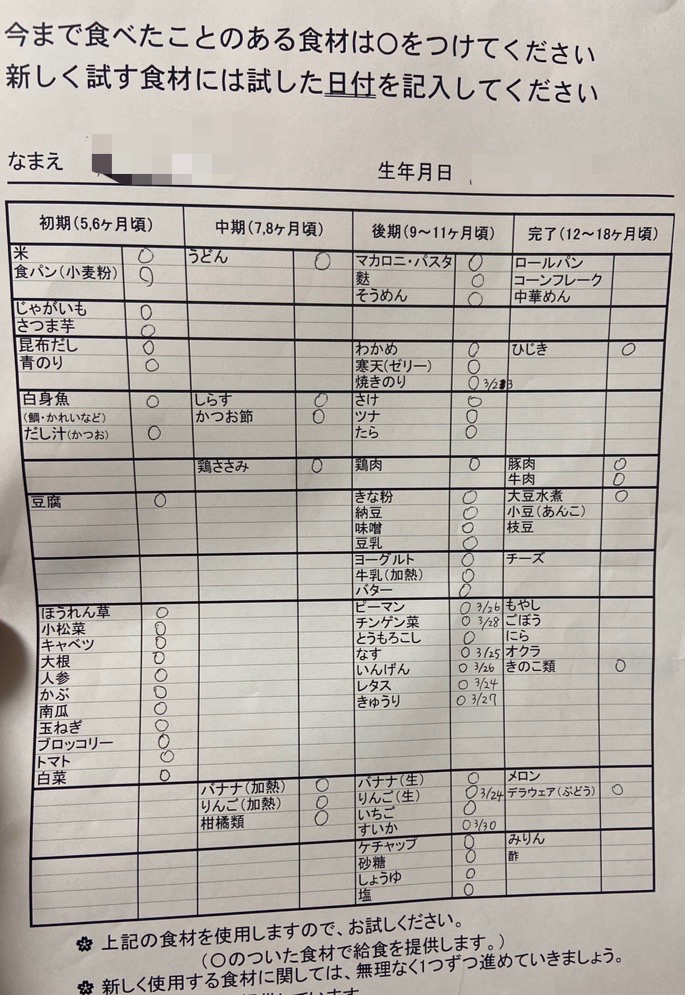 今まで食べたことのある食材は○をつけてください
新しく試す食材には試した日付を記入してください
なまえ 生年月日
初期(5,6ヶ月頃) 中期(7,8ヶ月頃) 後期(9～11ヶ月頃) 完了(12～18ヶ月頃)
米 ○ うどん ○ マカロニ・パスタ ○ ロールパン
食パン(小麦粉) ○ 麩 ○ コーンフレーク
そうめん ○ 中華めん
じゃがいも ○
さつま芋 ○
昆布だし ○ わかめ ○ ひじき ○
青のり ○ 寒天(ゼリー) ○
焼きのり ○ 3/23
白身魚 ○ しらす ○ さけ ○
(鯛・かれいなど) かつお節 ○ ツナ ○
だし汁(かつお) ○ たら ○
鶏ささみ ○ 鶏肉 ○ 豚肉 ○
牛肉 ○
豆腐 ○ きな粉 ○ 大豆水煮 ○
納豆 ○ 小豆(あんこ)
味噌 ○ 枝豆
豆乳 ○
ヨーグルト ○ チーズ
牛乳(加熱) ○
バター ○
ほうれん草 ○ ピーマン ○ 3/26 もやし
小松菜 ○ チンゲン菜 ○ 3/28 ごぼう
キャベツ ○ とうもろこし ○ にら
大根 ○ なす ○ 3/25 オクラ
人参 ○ いんげん ○ 3/26 きのこ類 ○
かぶ ○ レタス ○ 3/24
南瓜 ○ きゅうり ○ 3/27
玉ねぎ ○
ブロッコリー ○
トマト ○
白菜 ○
バナナ(加熱) ○ バナナ(生) ○ メロン
りんご(加熱) ○ りんご(生) ○ 3/24 デラウェア(ぶどう) ○
柑橘類 ○ いちご ○
すいか ○ 3/30
ケチャップ ○ みりん
砂糖 ○ 酢
しょうゆ ○
塩 ○
上記の食材を使用しますので、お試しください。
(○のついた食材で給食を提供します。)
新しく使用する食材に関しては、無理なく1つずつ進めていきましょう。